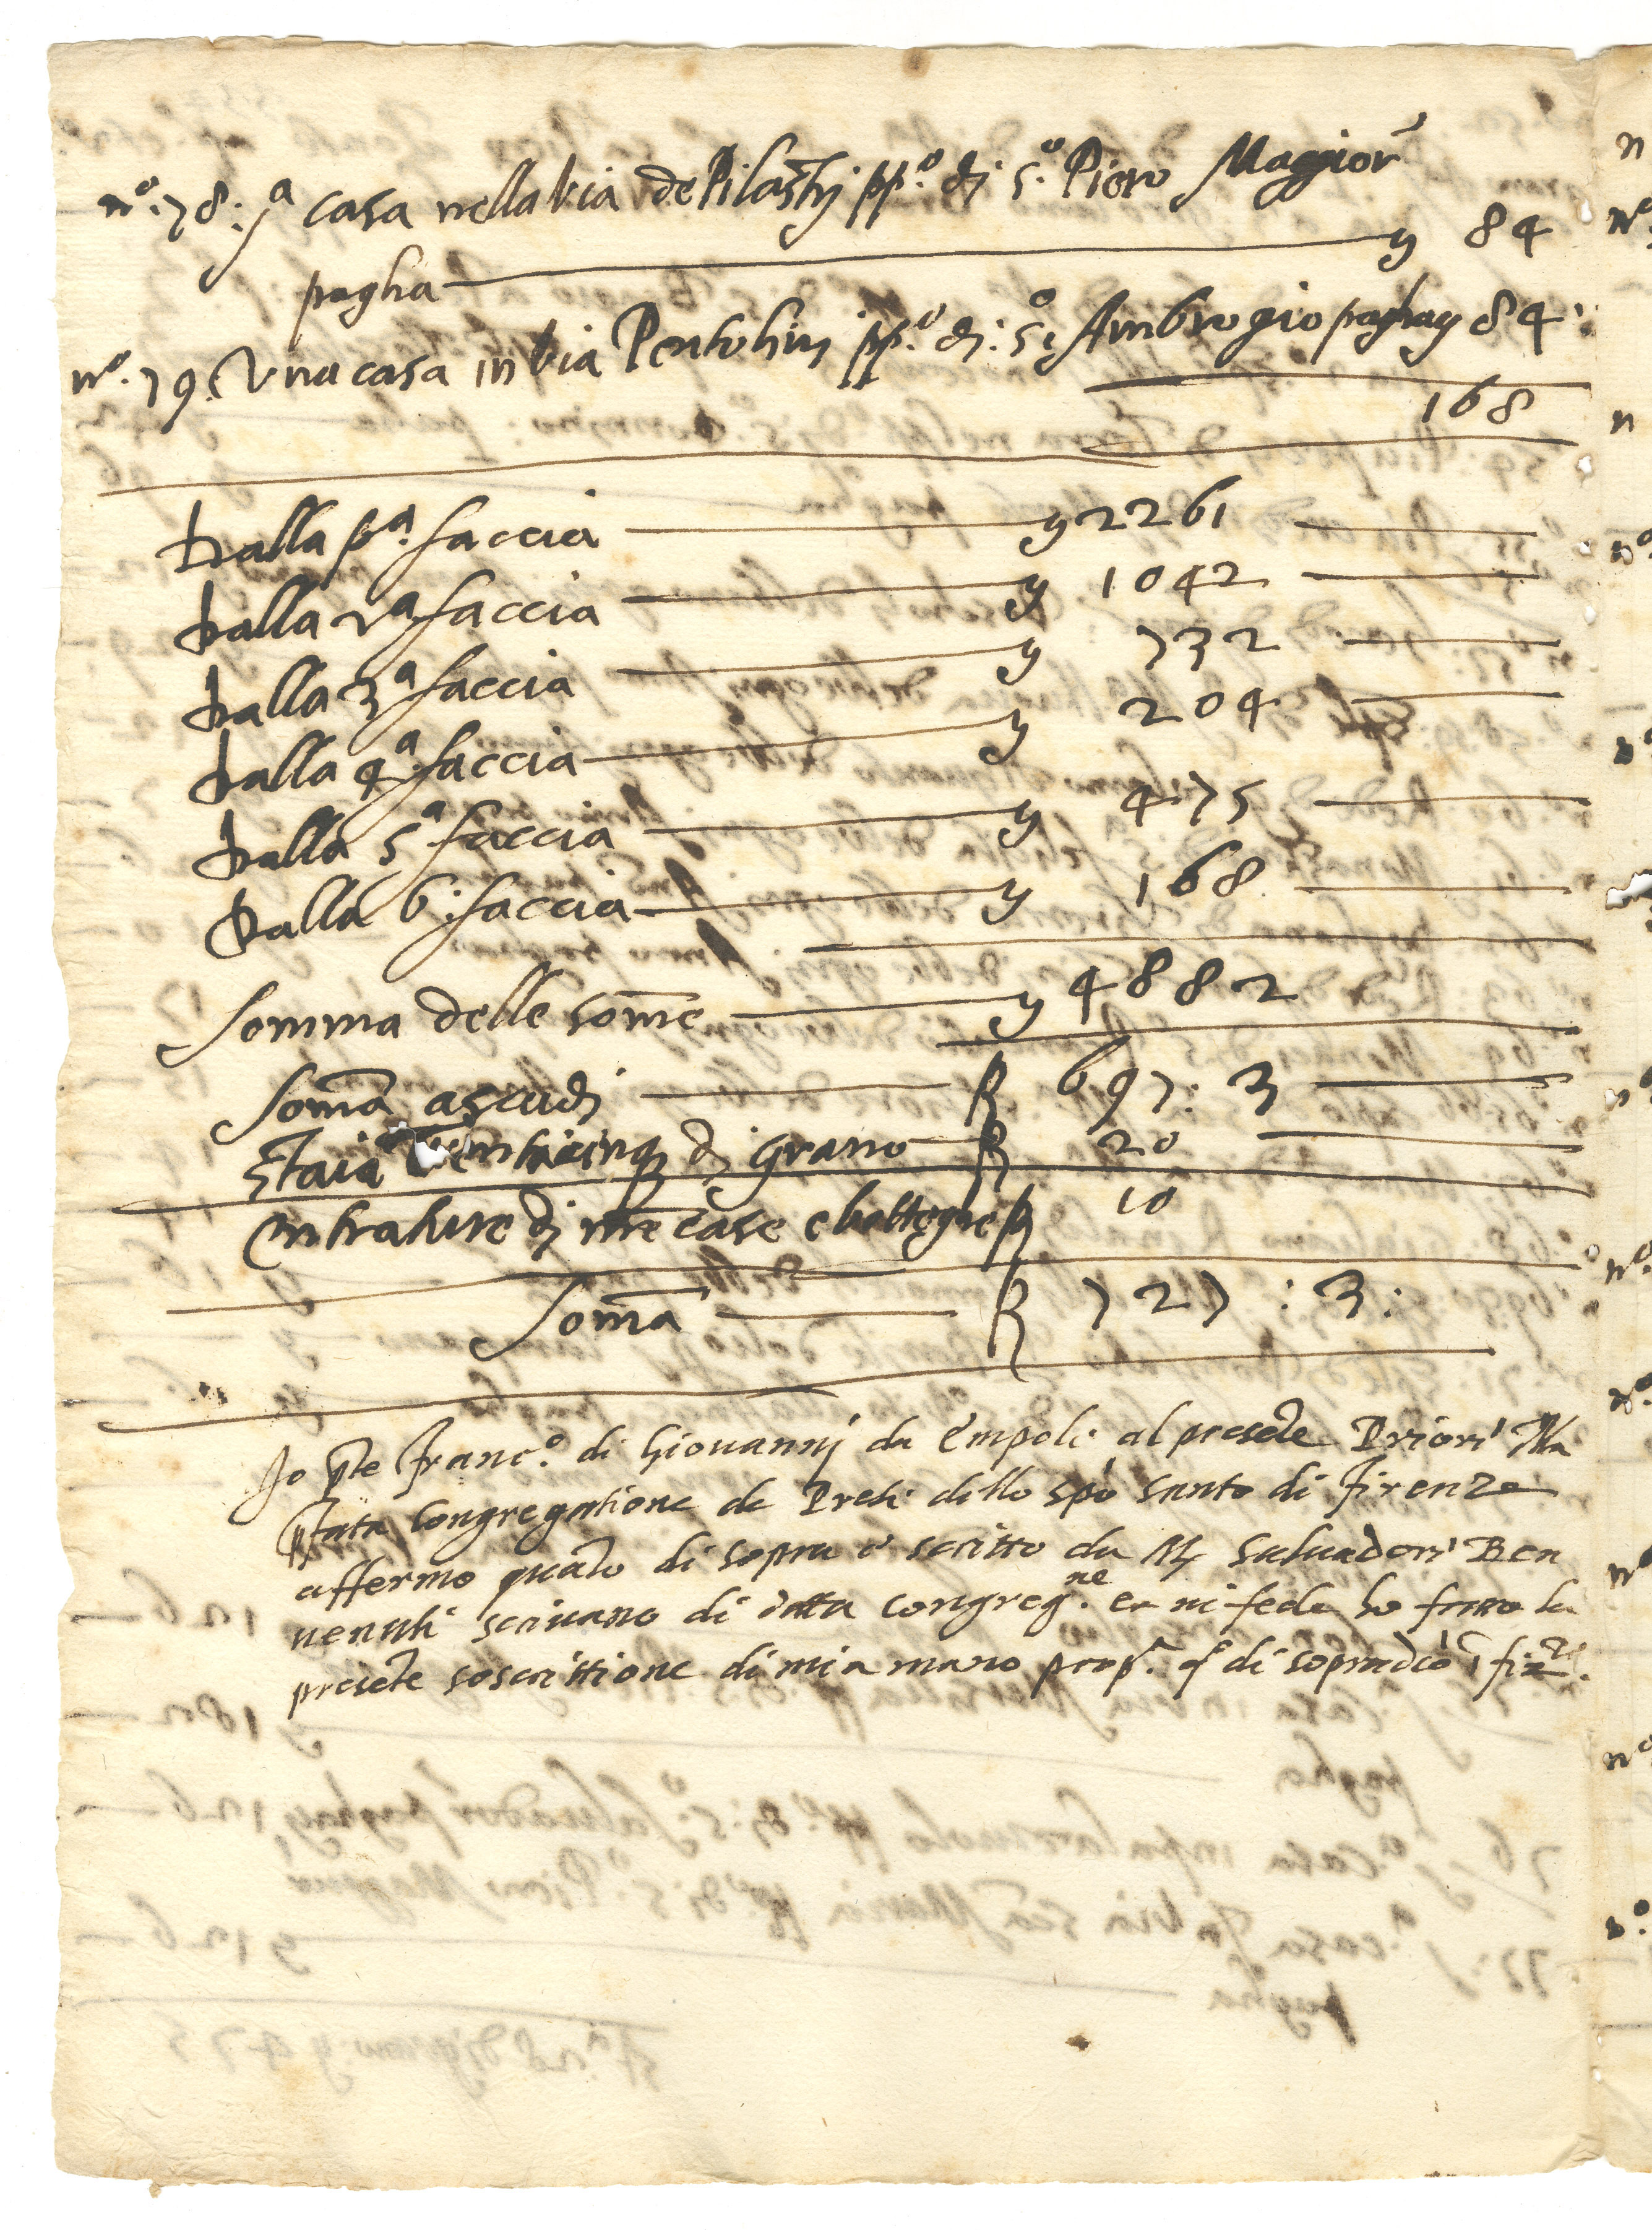 nº. 78: jª casa nella via de Pilastrj ppº. dj sº. Piero Maggiorᵉ
pagha — y 84
nº. 79. Una casa in via Pentolinj ppº. dj: sº. Ambrogio pagha y 84:
168
Dalla pª. faccia — y 2261 —
Dalla 2ª faccia — y 1042 —
Dalla 3ª faccia — y 732 —
Dalla 4ª. faccia — y 204 —
Dalla 5ª faccia — y 475 —
Dalla 6: faccia — y 168 —
Somma delle som̄e — y 4882
Som̄a ascudj — 697: 3 —
Staia venticinq dj grano — 20 —
Entrature dj case e botteghe 10
Som̄a — 727 : 3:
Io Francº. di Giovannj da Empoli al presēte Priorᵉ
Congregatione de Preti dello spō santo di Firenze
affermo quāto di sopra è scritto da Salvadorᵉ Ben
venuti scrivano di detta congregⁿᵉ. et in fede ho fatto la
presēte soscrittione di mia mano propª. di sopradᵒ